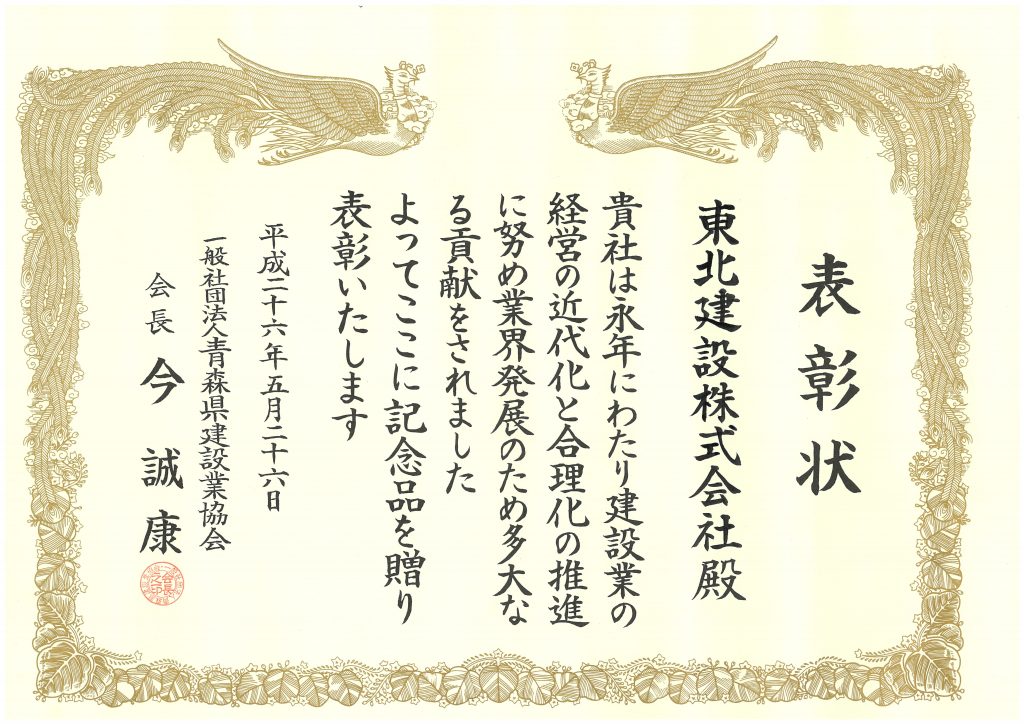 表彰状
東北建設株式会社殿
貴社は永年にわたり建設業の
経営の近代化と合理化の推進
に努め業界発展のため多大な
る貢献をされました
よってここに記念品を贈り
表彰いたします
平成二十六年五月二十六日
一般社団法人青森県建設業協会
会長 今誠康